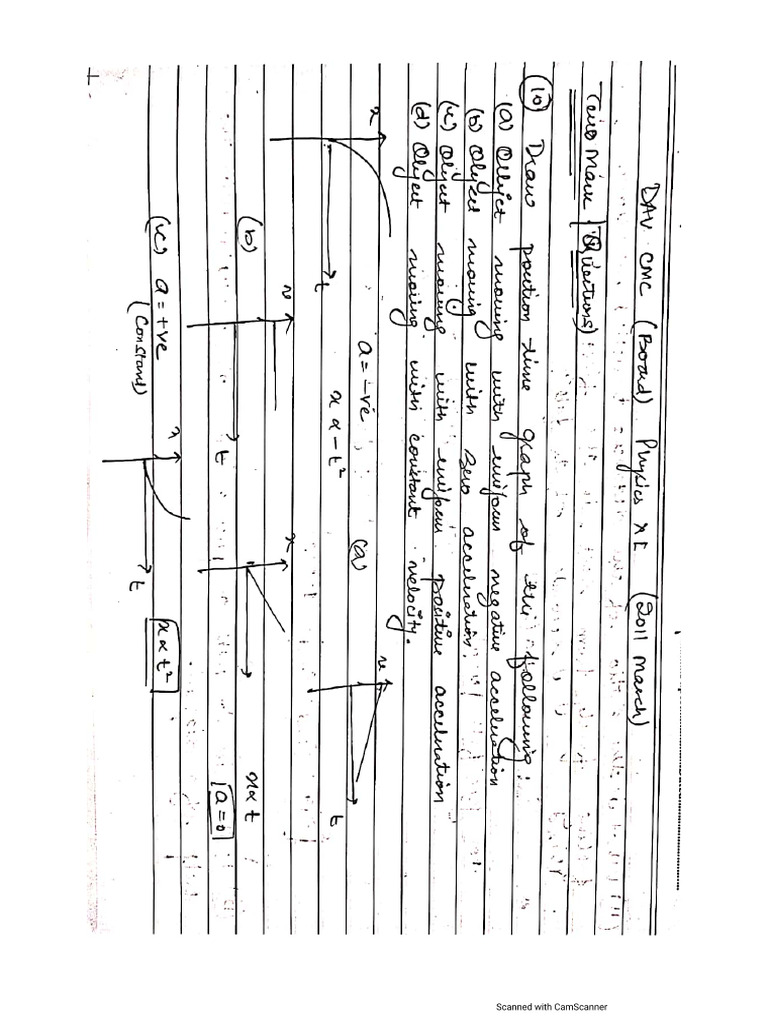 DAV CMC (Board) Physics XI (2011 March)
Two Mark Questions)
(10) Draw position-time graph of the following:
(a) Object moving with uniform negative acceleration
(b) Object moving with zero acceleration.
(c) Object moving with uniform positive acceleration
(d) Object moving with constant velocity.
x
t
a = -ve
x α - t²
(a)
v
t
(b)
v
t
x
x α t
a = 0
(c) a = +ve
(Constant)
x
t
x α t²
Scanned with CamScanner